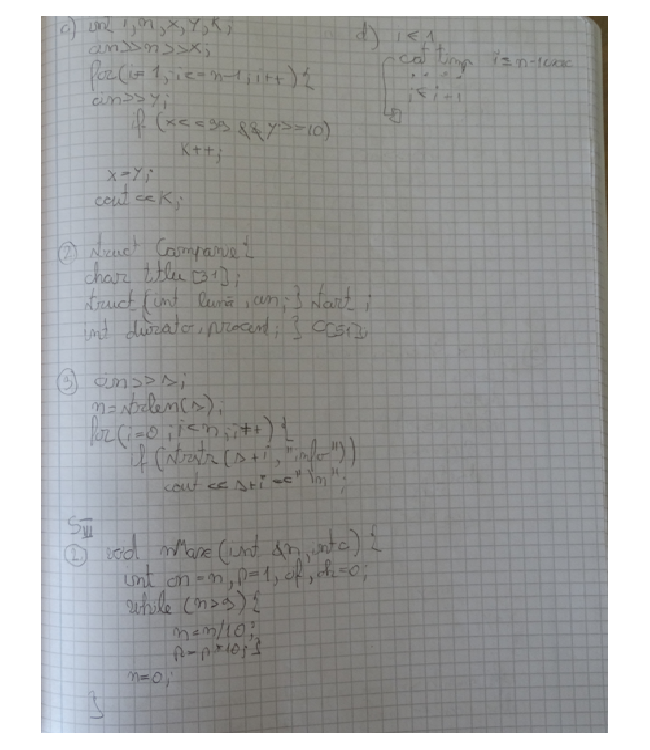 c) int i, n, x, y, k;
cin>>n>>x;
for(i=1, i<=n-1, i++) {
cin>>y;
if (x<=99 && y>=10)
k++;
x=y;
cout <<k;
d) i<1
cat timp i≤n-1 exec
. . . .
i< i+1
② struct Campanie {
char titlu [31];
struct {int luna, an; } start ;
int durata, procent; } c[51];
③ cin>>s;
n=strlen(s);
for(i=0; i<n; i++) {
if (strstr(s+i, "info"))
cout << s+i <<"\n";
SIII
① void nMax(int &n, int c) {
int cn=n, p=1, cf, ok=0;
while (n>9) {
n=n/10;
p=p*10; }
n=0;
}